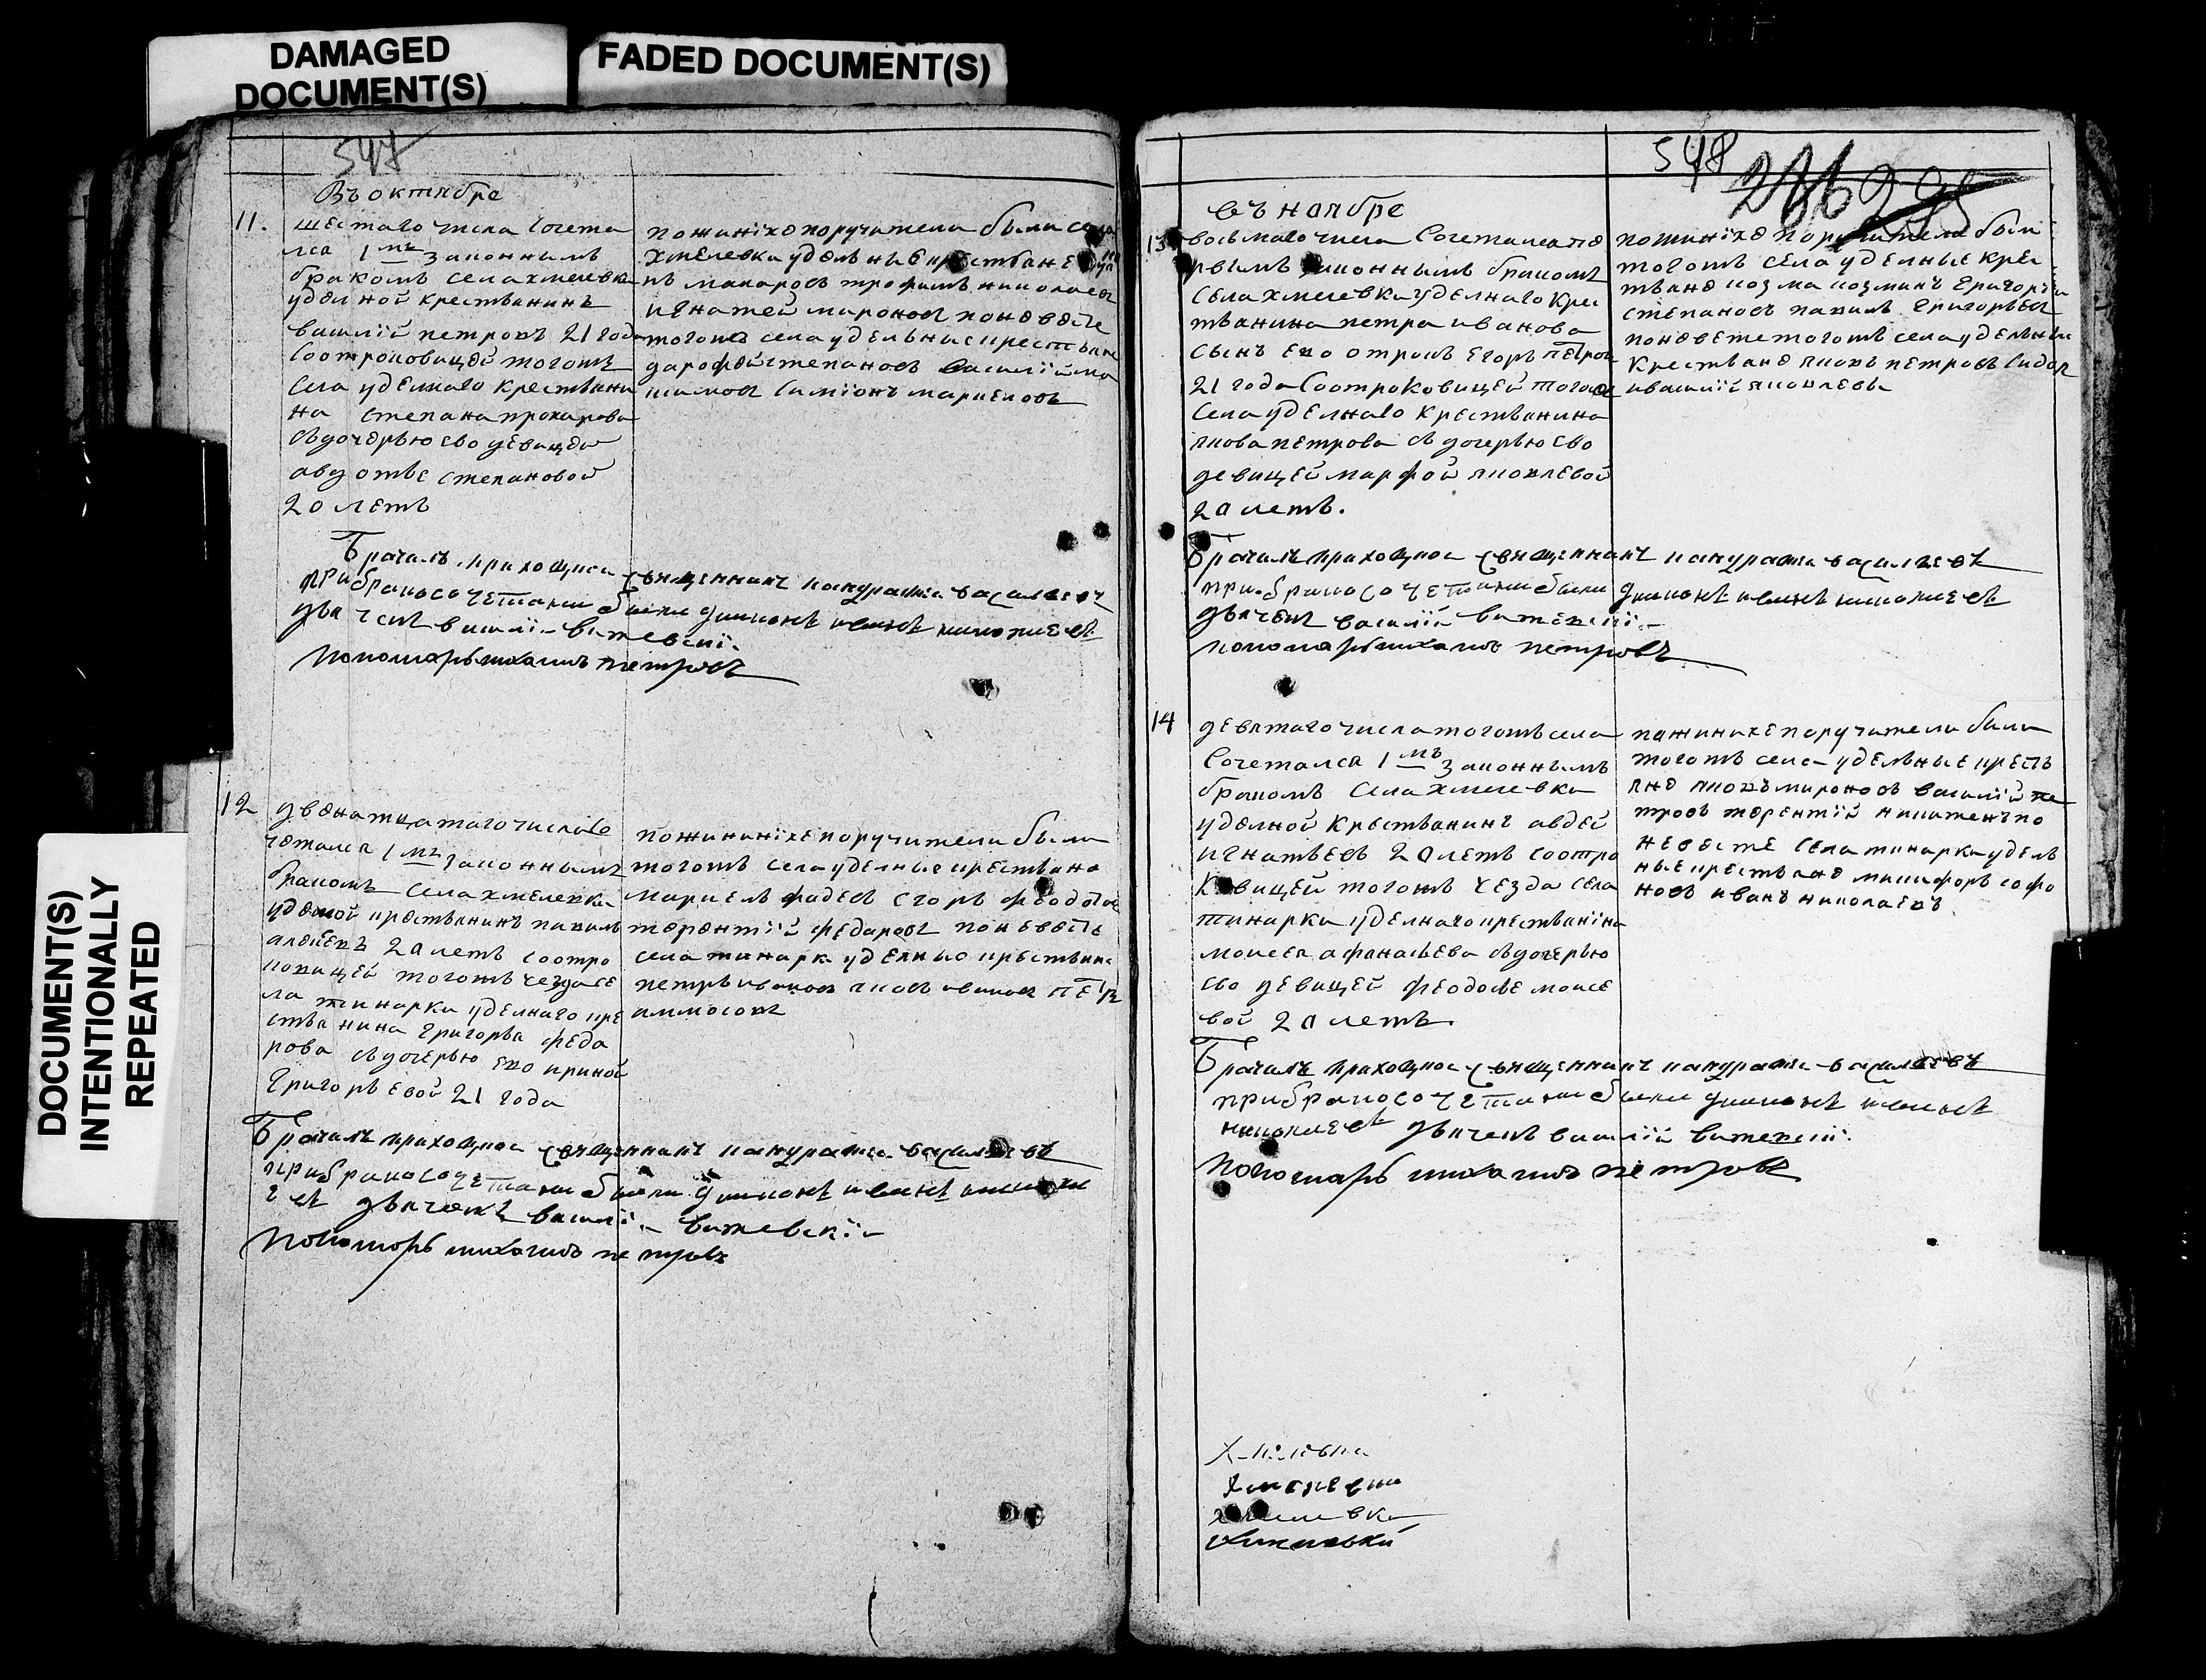 DAMAGED
DOCUMENT(S)
FADED DOCUMENT(S)
DOCUMENT(S)
INTENTIONALLY
REPEATED
547
Въ октябре
11.
шестаго числа сочета
лса 1 мъ законнымъ
бракомъ села хмелевка
уделной крестванинъ
василiй петровъ 21 года
соотроковицей тогожъ
села уделнаго крествани
на степана прохарова
съдочерью ево девицею
авдотье степановой
20 летъ
пожинiхе поручители были села
хмелевка уделныя крестване
въ макаровъ трофимъ николаевъ
игнатей мироновъ поневесте
тогожъ села удельные крестьяне
дарофей степановъ василiй
симiонъ маркеловъ
Брачалъ приходцкой священникъ кандратiй василевъ
при бракосочетании были диаконъ иванъ николаевъ
дьячекъ василiй
Пономарь михаилъ петровъ
12
двенатцатаго числа со
четался 1 мъ законнымъ
бракомъ села хмелевка
уделной крестванинъ павилъ
алексеевъ 20 летъ соотро
ковицей тогожъ уезда се
ла тинарка уделнаго кре
ства нина григорьа феда
рова съдочерью ево ириной
григорьевой 21 года
пожинихе поручители были
тогожъ села уделные крествана
маркелъ фадеевъ егоръ феодотовъ
терентiй федаровъ поневесте
села тинарка уделные крествяне
петръ ивановъ яковъ ивановъ петръ
аммосовъ
Брачалъ приходцкой священникъ кандратiй василевъ
при бракосочетании были диаконъ иванъ николаевъ
дьячекъ василiй
Пономарь михаилъ петровъ
548
въ ноябре
13
восьмаго числа сочеталса пе
рвымъ законнымъ бракомъ
села хмелевка уделнаго крес
тванина петра иванова
сынъ ево отрокъ егоръ петровъ
21 года соотроковицей тогожъ
села уделнаго крестванина
якова петрова съ дочерью ево
девицей марфой яковлевой
20 летъ.
пожинiхе поручители были
тогожъ села уделные крес
тване козма козминъ григорiй
степановъ павилъ григорьевъ
поневесте тогожъ села удельные
крестване яковъ петровъ сидоръ
ивасилiй яковлевы
Брачалъ приходцкой священникъ кандратiй василевъ
при бракосочетании были диаконъ иванъ николаевъ
дьячекъ василiй
пономарь михаилъ петровъ
14
девятаго числа тогожъ села
сочетался 1 мъ законнымъ
бракомъ села хмелевка
уделной крестванинъ авдей
игнатьевъ 20 летъ соотро
ковицей тогожъ уезда села
тинарка уделнаго крестванiна
моисея афанасьева съдочерью
ево девицей феодосье моисе
вой 20 летъ.
пожинихе поручители были
тогожъ села удельные кресть
яне яковъ мироновъ василiй пе
тровъ терентiй никитенъ по
невесте села тинарка удель
ные крестване никифоръ софо
новъ иванъ николаевъ
Брачалъ приходцкой священникъ кандратiй василевъ
при бракосочетании были диаконъ иванъ
николаевъ дьячекъ василiй
пономарь михаилъ петровъ